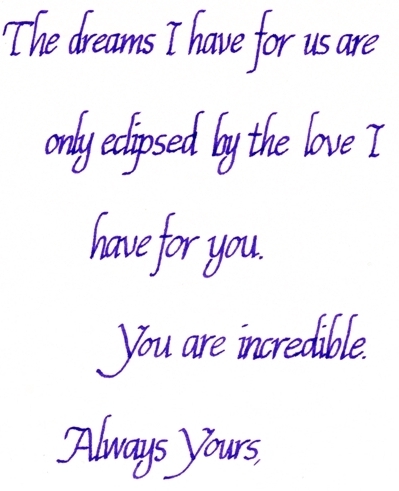 The dreams I have for us are
only eclipsed by the love I
have for you.
You are incredible.
Always Yours,